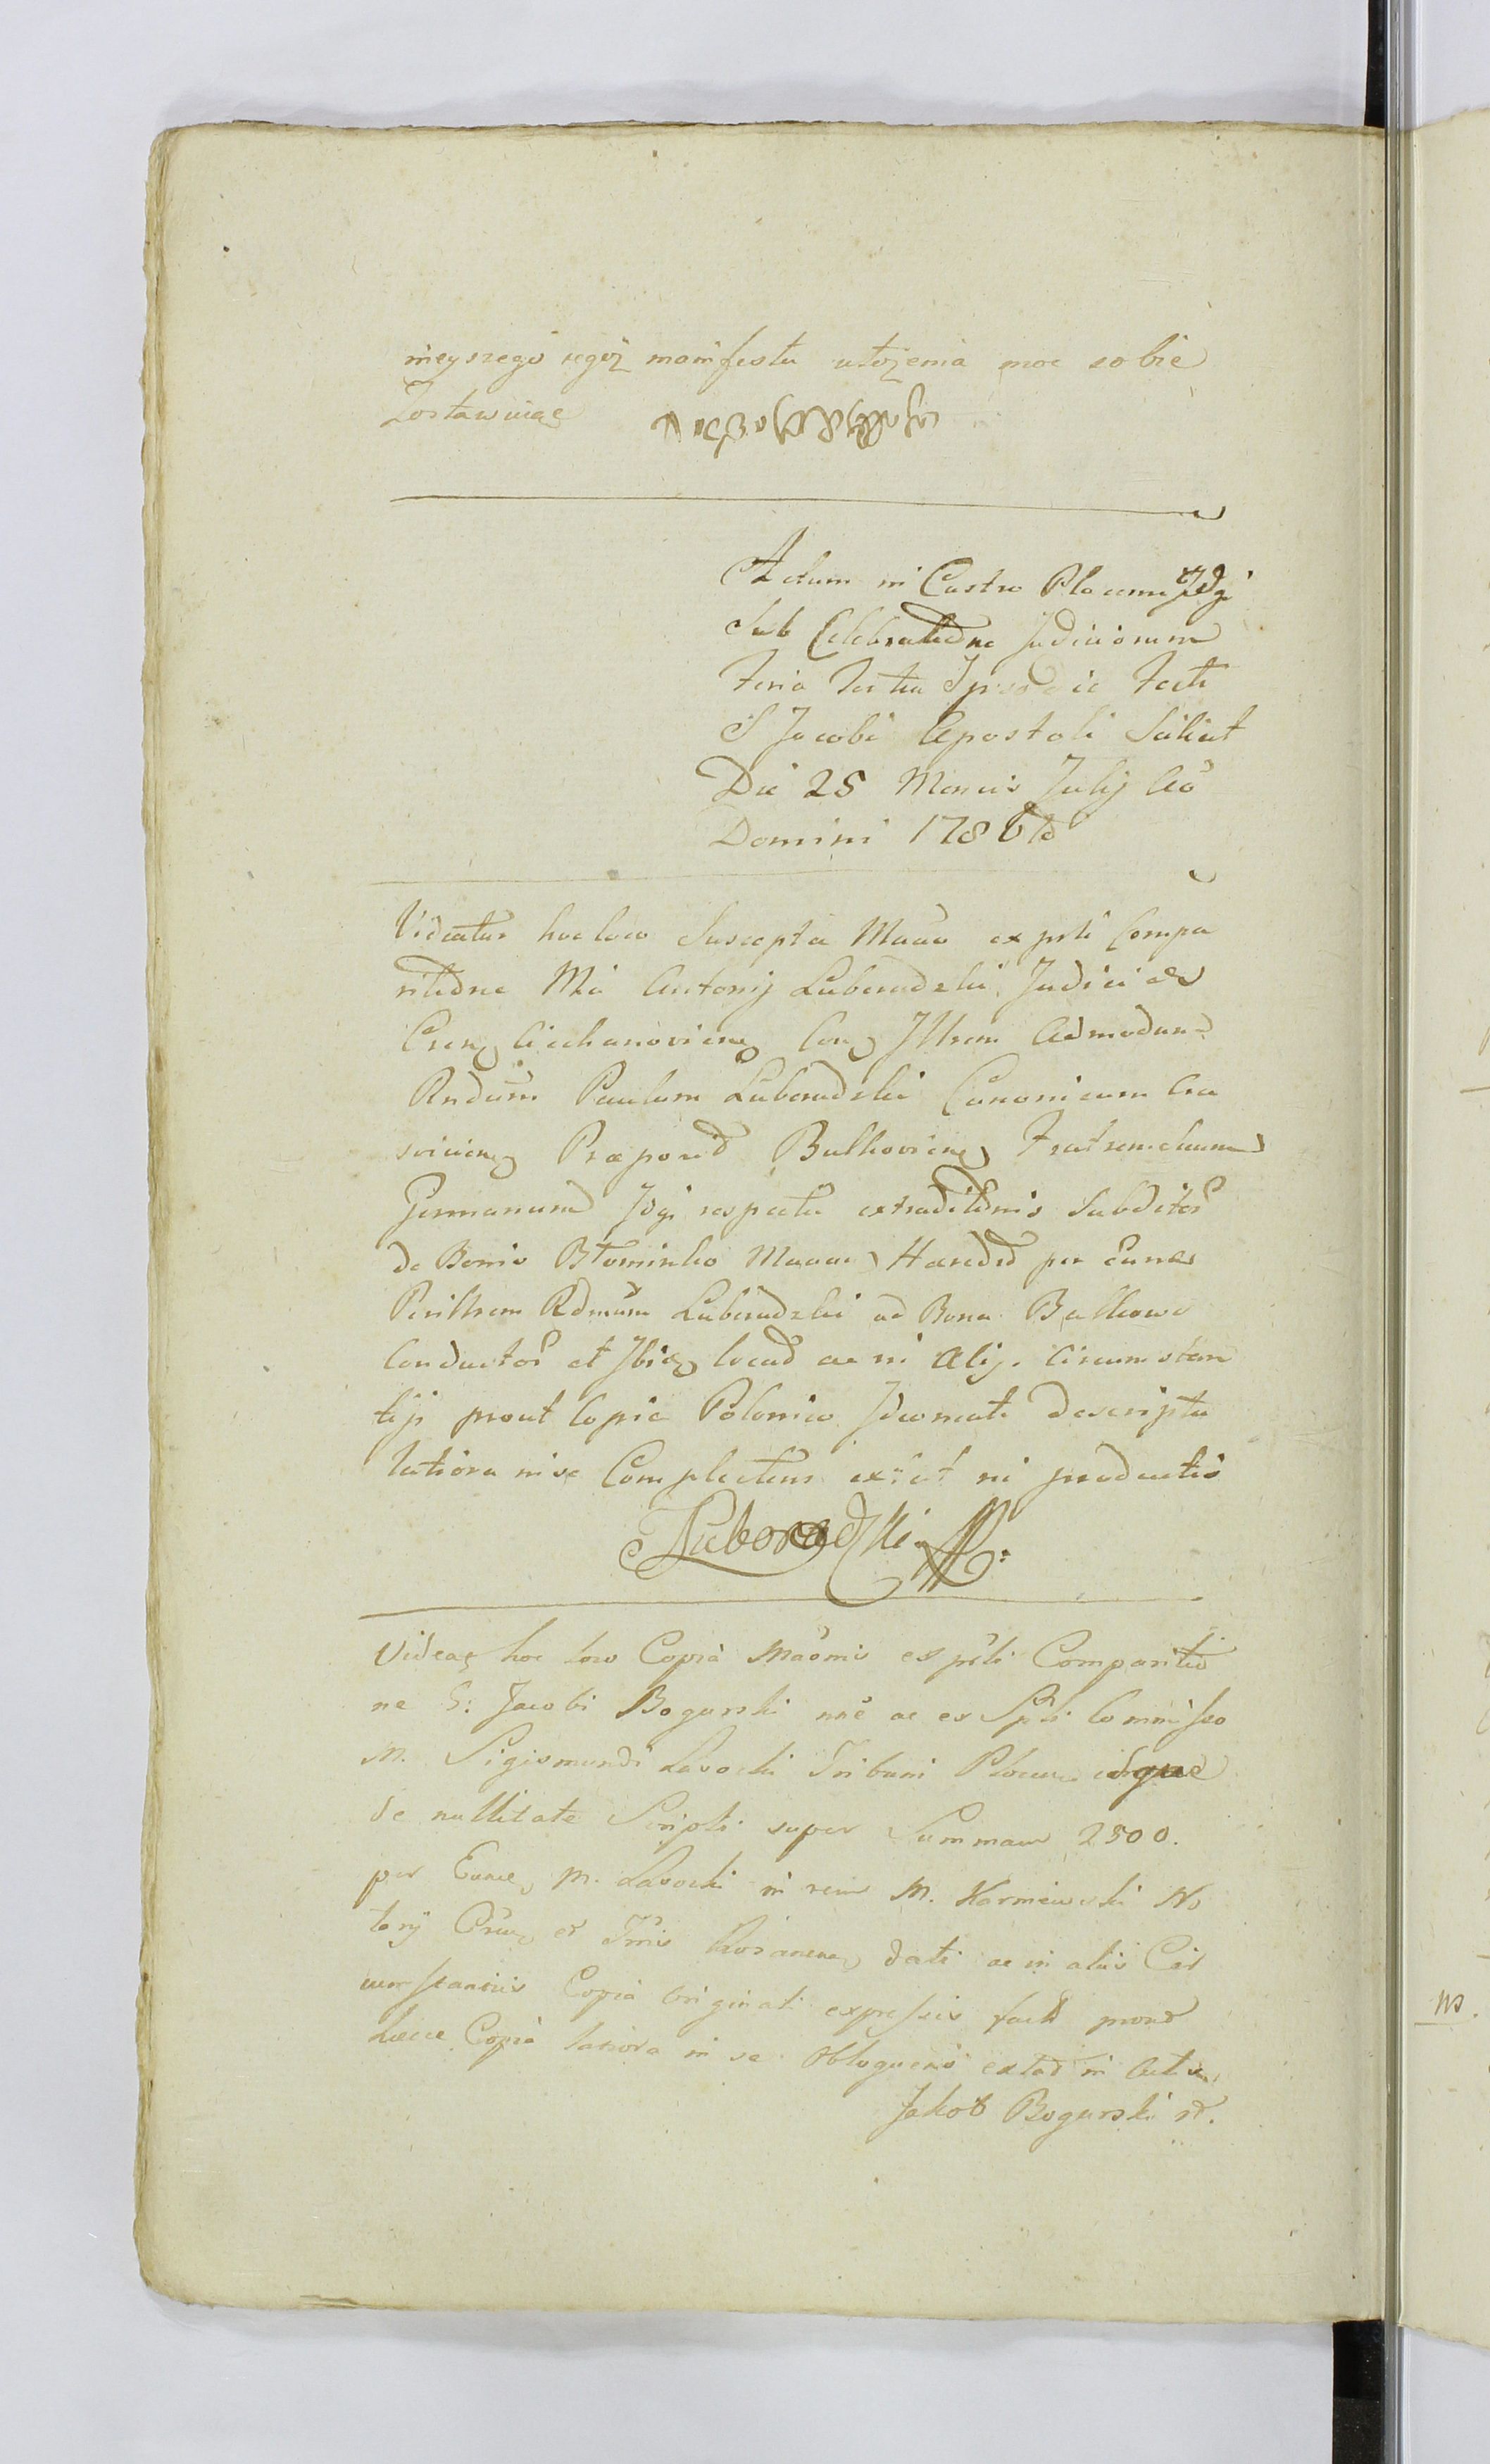 nieyszego iegoż manifestu ułożenia moc sobie
Zostawuiąc
Actum in Castro Plocensi Idq
Sub Celebratione Judiciorum
Feria Tertia Ipso die Festi
S Jacobi Apostoli Scilicet
Die 25 Mensis Julij Ao
Domini 1786to
Videatur hoc loco Suscepta Mańao ex psti Compa
ritione Mci Antonij Luberadzki Judicia
Cren Ciechanoviens Con Illrem Admodum
Rndum Paulum Luberadzki Canonicum Cra
soviens Praeposid Bulkoviens Fratrem suum
Germanum Idq respectu extraditionis Subditor
de Bonis Błominko Haered per eund
Perillrem Rdmum Luberadzki ad Bona Bulkowo
Conductor et Ibiq locad ac in Alijs Circumstan
tijs prout Copia Polonico Ideomate descripta
latiora in se Complectens exstat in productis
Luberadzki
Videat hoc loco Copia Maonis ex psti Comparitio
ne G: Jacobi Bogurski nõe ac ex Spli Commisso
M. Sigismundi Lasocki Tribuni Plocen idque
de nullitate Scripti super Summam 2500.
per Eund M. Lasocki in rem M. Karniewski No
tarij Cren et Tris Rosanens dati ac in aliis Cir
cumstantiis Copia originali expressis facta prout
haece Copia latiora in se obloquens extad in Actis
Jakob Bogurski
NS.